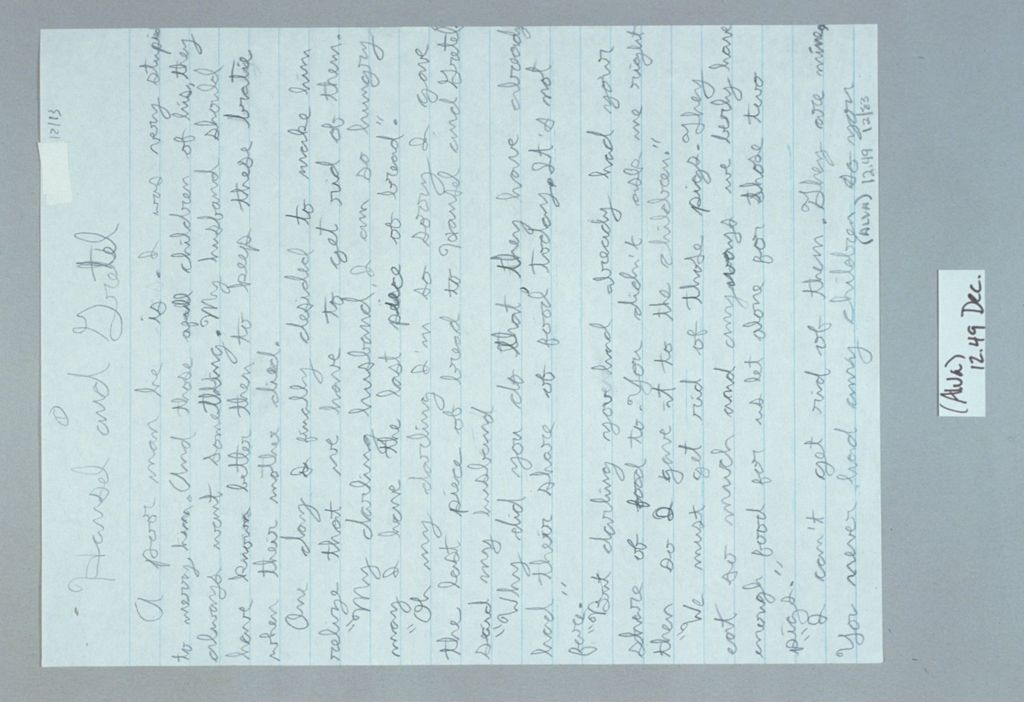 12/13
Hansel and Gretel
A poor man he is. I was very stupid
to merry him. And those awfull children of his, they
always want something. My husband should
have known better then to keep these bratie
when their mother died.
One day I finally desided to make him
realize that we have to get rid of them.
"My darling husband, I am so hungry
may I have the last piece of bread."
"Oh my darling I'm so sorry I gave
the last piece of bread to Hansel and Gretel
said my husband
"Why did you do that, they have already
had their share of food, today. It's not
faire."
"But darling you had already had your
share of food to. You didn't ask me right
then so I gave it to the children."
"We must get rid of those pigs. They
eat so much and anyways we berly have
enough food for us let alone for those two
pigs."
"I can't get rid of them. They are mine,
You never had any children so you
(ALVA) 12.49 12/83
(ALVA)
12.49 Dec.